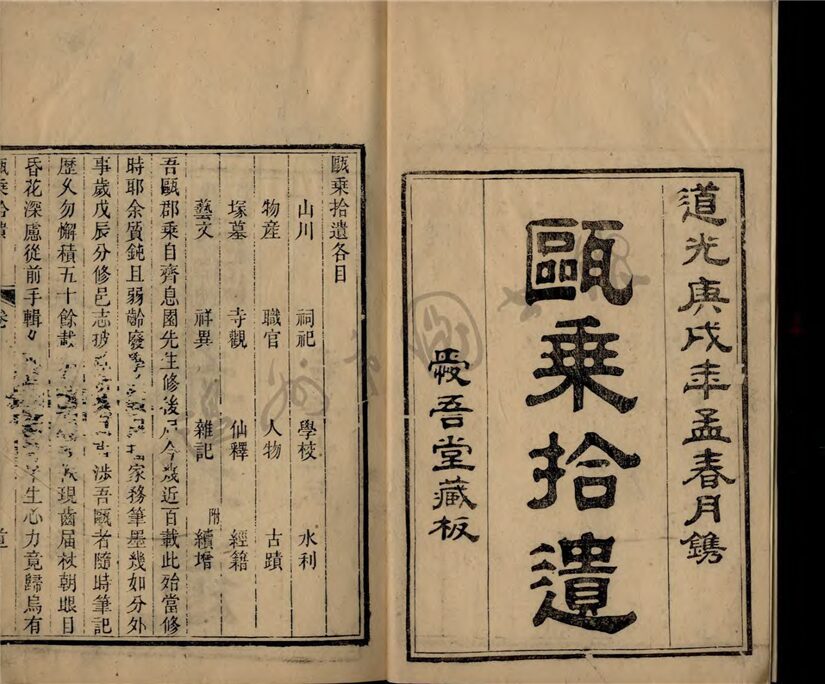 道光庚戌年孟春月鐫
甌乗拾遺
愛吾堂藏板
甌乗拾遺各目
山川 祠祀 學校 水利
物産 職官 人物 古蹟
塚墓 寺觀 仙釋 經籍
藝文 祥異 雜記 附續增
吾甌郡乗自齊息園先生修後居今幾近百載此殆當修
時耶余質鈍且弱齡廢家務筆墨幾如分外
事歲戊辰分修邑志玻涉吾甌者隨時筆記
歷久勿懈積五十餘載現齒屆杖朝眼目
昏花深慮從前手輯生心力竟歸烏有